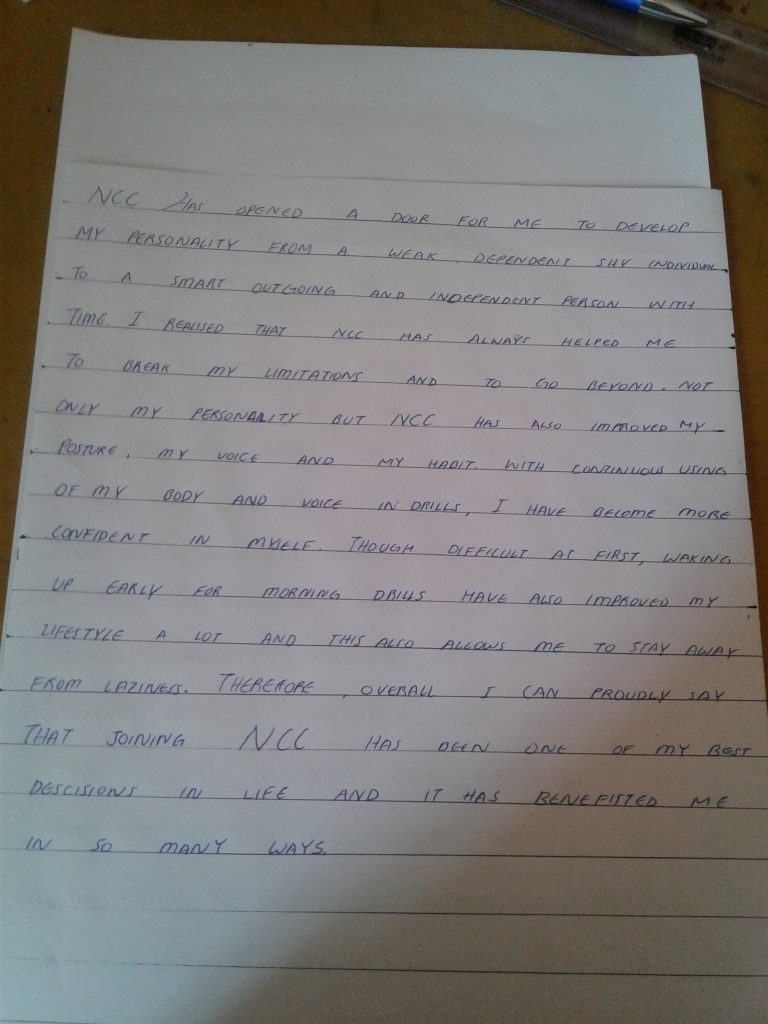 NCC HAS OPENED A DOOR FOR ME TO DEVELOP
MY PERSONALITY FROM A WEAK, DEPENDENT SHY INDIVIDUAL
TO A SMART OUTGOING AND INDEPENDENT PERSON WITH
TIME. I REALISED THAT NCC HAS ALWAYS HELPED ME
TO BREAK MY LIMITATIONS AND TO GO BEYOND. NOT
ONLY MY PERSONALITY BUT NCC HAS ALSO IMPROVED MY
POSTURE, MY VOICE AND MY HABIT. WITH CONTINUOUS USING
OF MY BODY AND VOICE IN DRILLS, I HAVE BECOME MORE
CONFIDENT IN MYSELF. THOUGH DIFFICULT AT FIRST, WAKING
UP EARLY FOR MORNING DRILLS HAVE ALSO IMPROVED MY
LIFESTYLE A LOT AND THIS ALSO ALLOWS ME TO STAY AWAY
FROM LAZINESS. THEREFORE, OVERALL I CAN PROUDLY SAY
THAT JOINING NCC HAS BEEN ONE OF MY BEST
DESCISIONS IN LIFE AND IT HAS BENEFISTED ME
IN SO MANY WAYS.